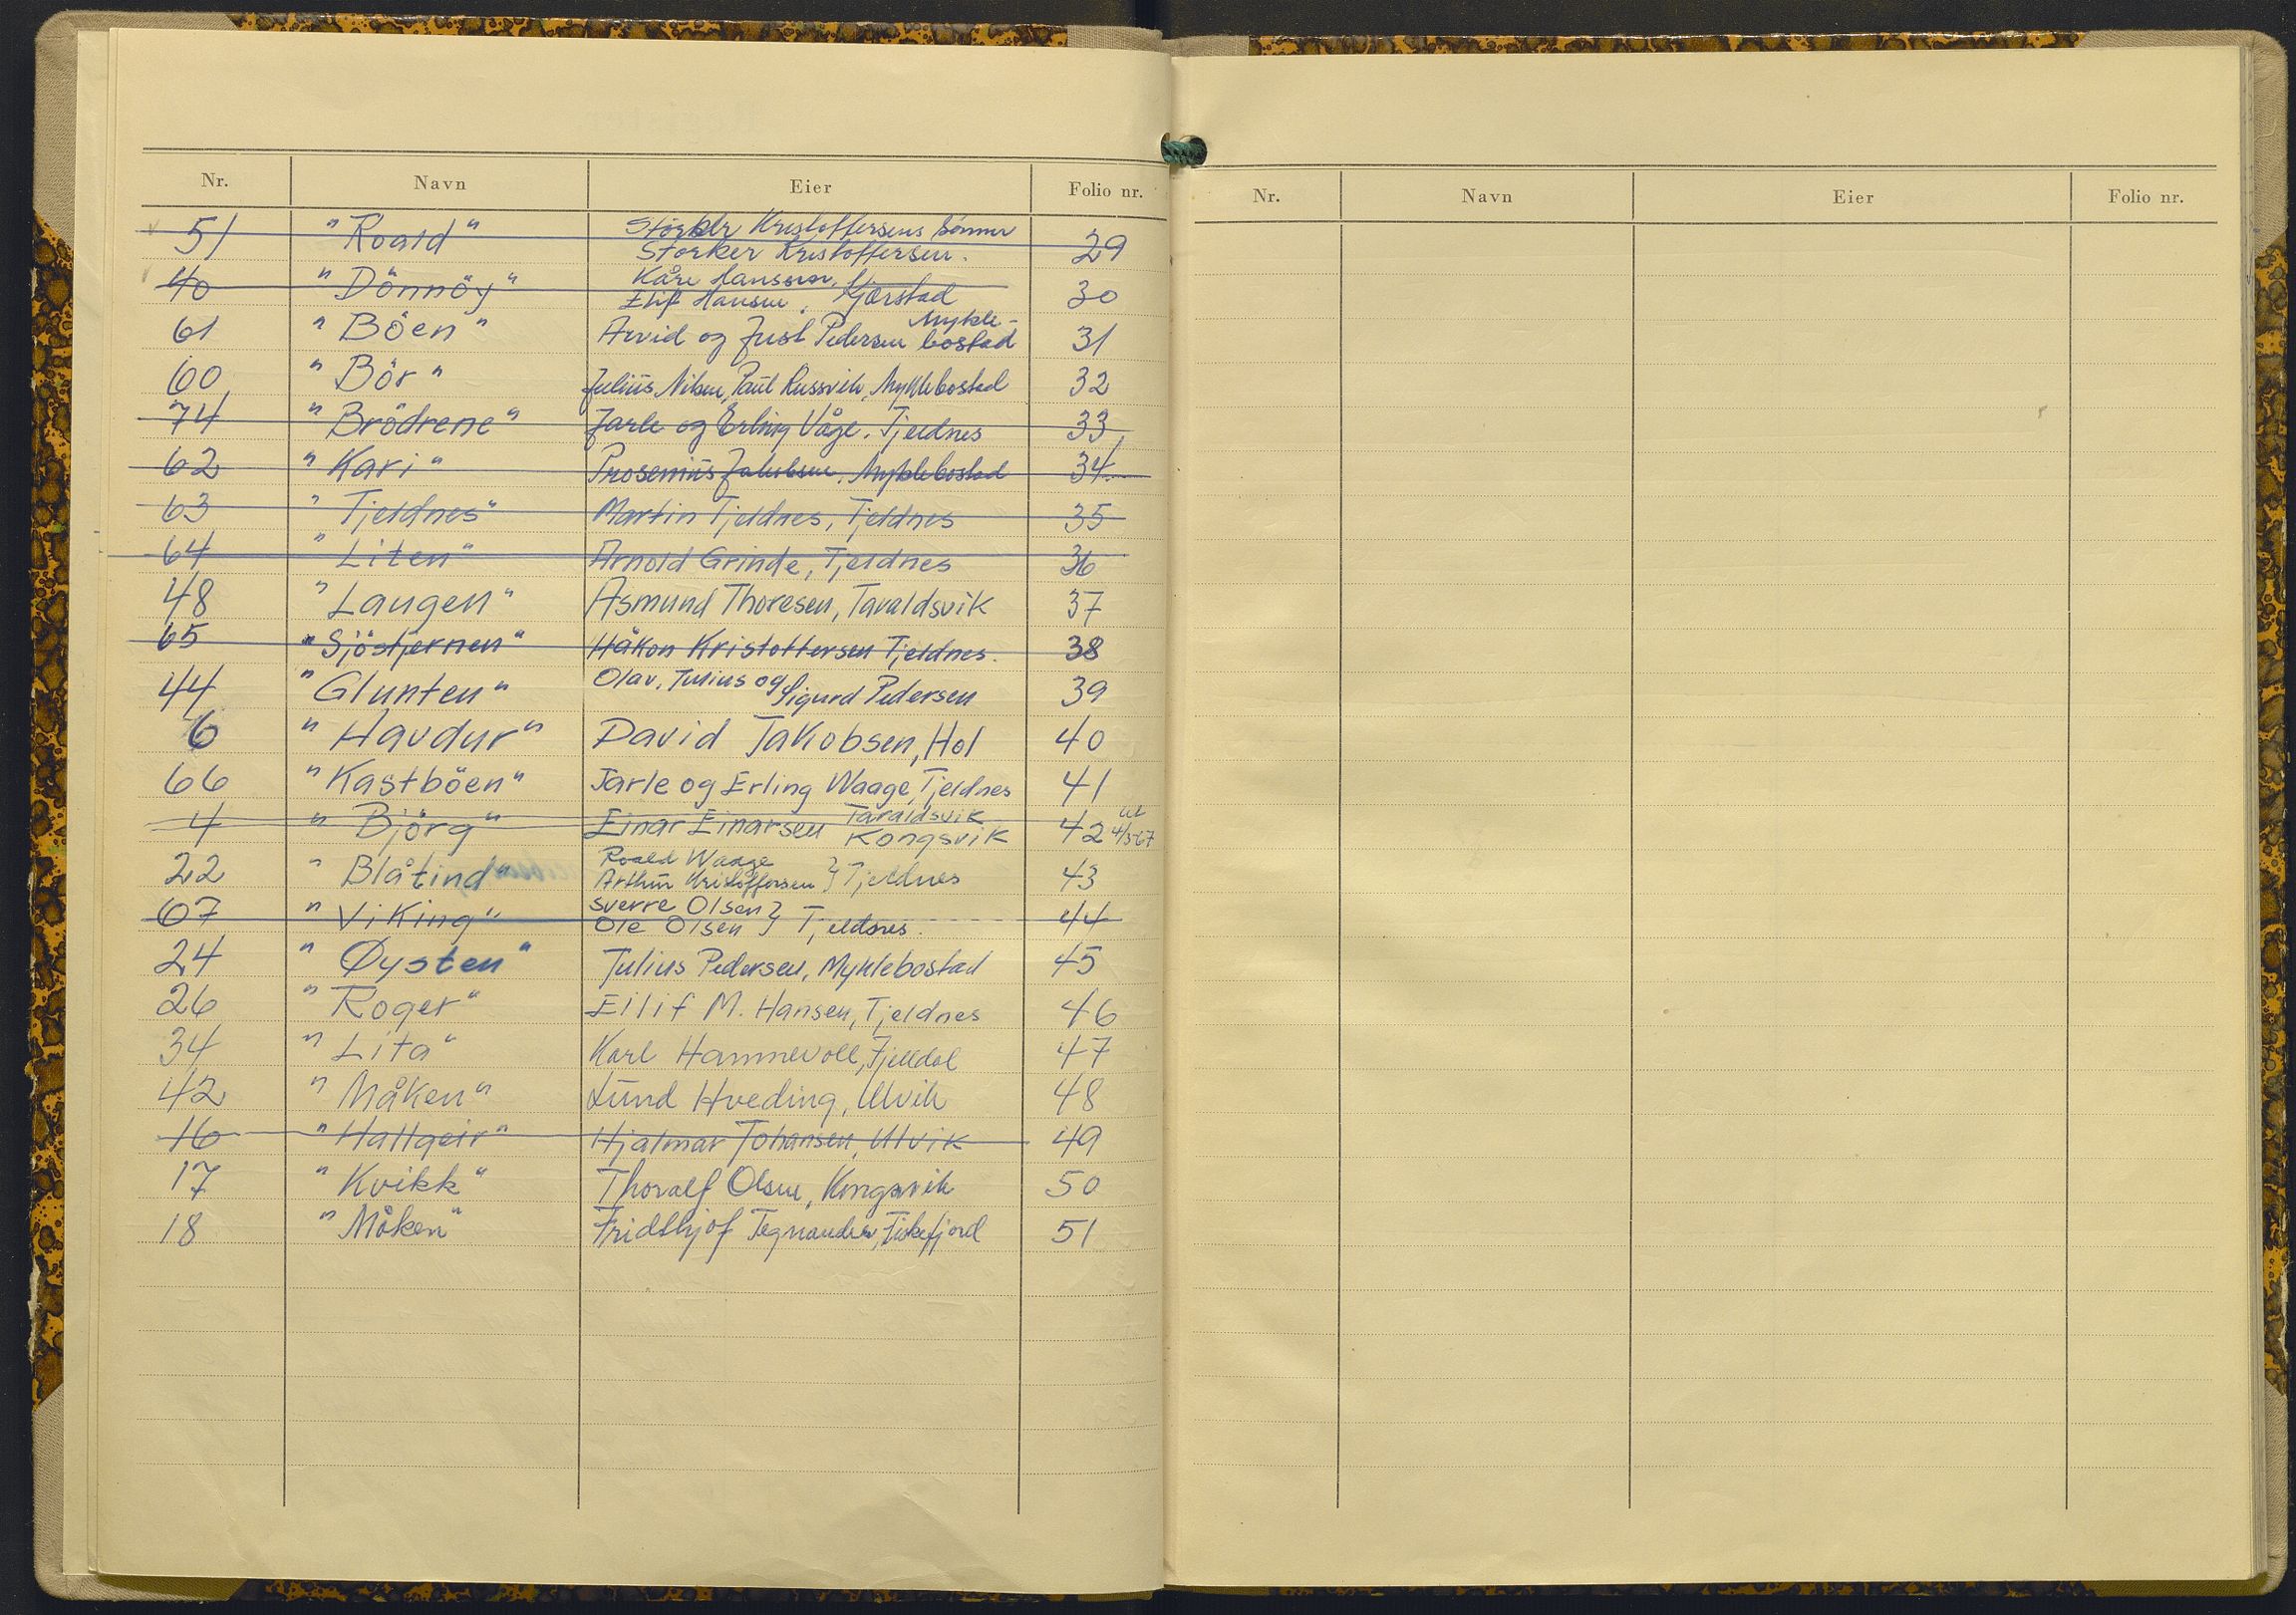 Nr. Navn Eier Folio nr.
51 "Roald" Störker Kristoffersens Sönner
Störker Kristoffersen. 29
40 "Dönnöy" Kåre Hanssen,
Eilif Hansen, Kjærstad 30
61 "Böen" Arvid og Just Pedersen Mykle-
bostad 31
60 "Bör" Julius Nilsen, Paul Russvik, Myklebostad 32
74 "Brödrene" Jarle og Erling Våge. Tjeldnes 33
62 "Kari" Prosenius Jakobsen. Myklebostad 34
63 "Tjeldnes" Martin Tjeldnes, Tjeldnes 35
64 "Liten" Arnold Grinde, Tjeldnes 36
48 "Laugen" Asmund Thoresen, Taraldsvik 37
65 "Sjöstjernen" Håkon Kristoffersen Tjeldnes. 38
44 "Glunten" Olav, Julius og
Sigurd Pedersen 39
6 "Havdur" David Jakobsen, Hol 40
66 "Kastböen" Jarle og Erling Waage, Tjeldnes 41
4 "Björg" Einar Einarsen Taraldsvik
Kongsvik 42 ut 4/3-67
22 "Blåtind" Roald Waage
Arthur Kristoffersen } Tjeldnes 43
67 "Viking" Sverre Olsen
Ole Olsen } Tjeldnes. 44
24 "Øysten" Julius Pedersen, Myklebostad 45
26 "Roger" Eilif M. Hansen, Tjeldnes 46
34 "Lita" Karl Hammevoll, Fjelldal 47
42 "Måken" Lund Hveding, Ulvik 48
16 "Hallgeir" Hjalmar Johansen, Ulvik 49
17 "Kvikk" Thoralf Olsen, Kongsvik 50
18 "Måken" Fridthjof Tegnander, Fiskefjord 51
Nr. Navn Eier Folio nr.